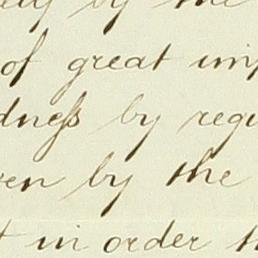 by the
of great imp
dness by requ
en by the
in order th